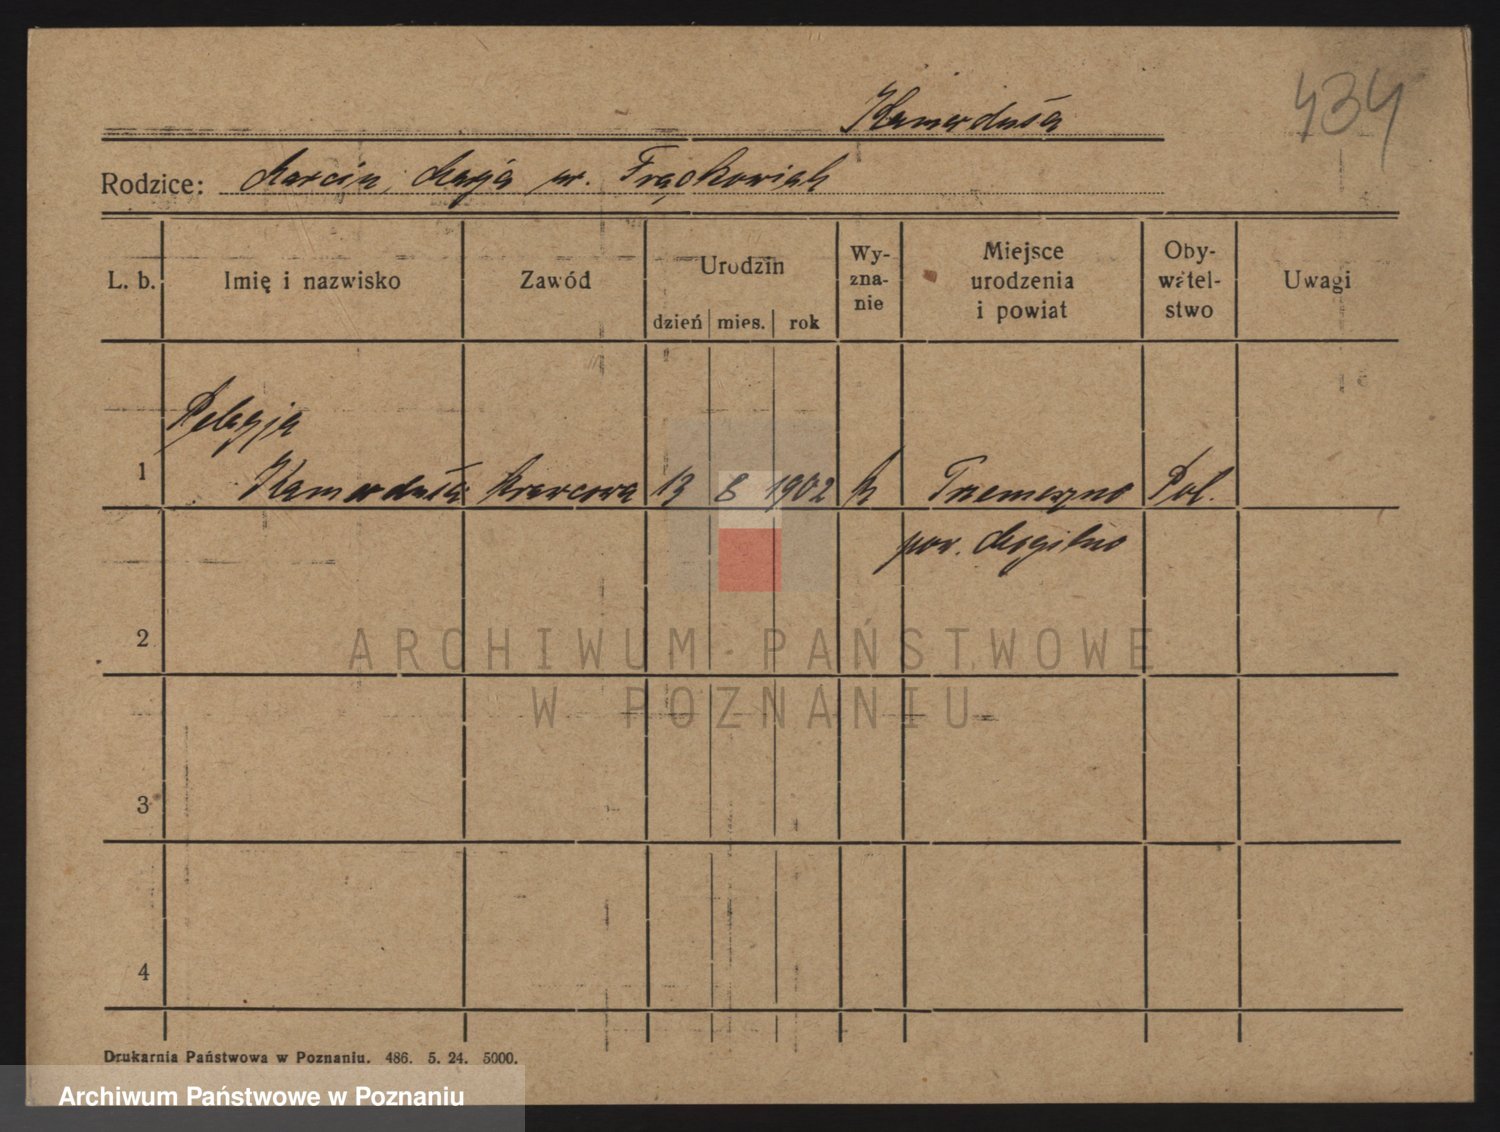 Kamerduła
434
Rodzice: Marcin, Marja ur. Frąckowiak
L. b. Imię i nazwisko Zawód Urodzin dzień mies. rok Wy-zna-nie Miejsce urodzenia i powiat Oby-watel-stwo Uwagi
Pelagja
1 Kamerduła krawcowa 13 8 1902 k Trzemeszno Pol.
pow. Mogilno
2
ARCHIWUM PAŃSTWOWE
W POZNANIU
3
4
Drukarnia Państwowa w Poznaniu. 486. 5. 24. 5000.
Archiwum Państwowe w Poznaniu